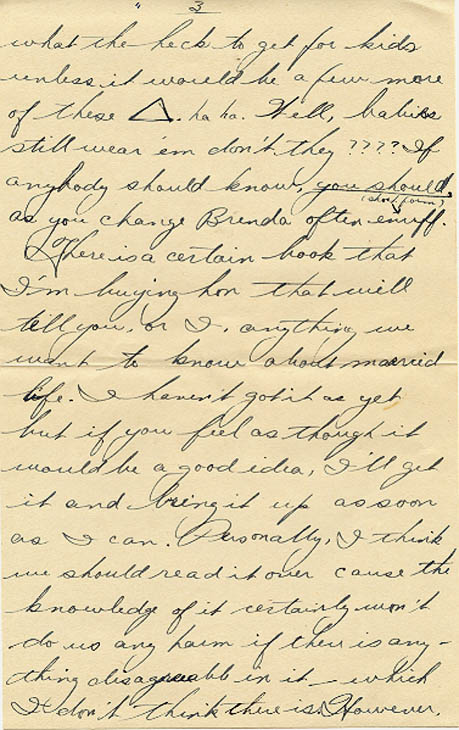 " 3
what the heck to get for kids
unless it would be a few more
of these △. ha ha. Well, babies
still wear 'em don't they ???? If
anybody should know, you should,
(short form)
as you change Brenda often enuff.
There is a certain book that
I'm buying hon that will
tell you, or I, anything we
want to know about married
life. I haven't got it as yet
but if you feel as though it
would be a good idea, I'll get
it and bring it up as soon
as I can. Personally, I think
we should read it over cause the
knowledge of it certainly won't
do us any harm if their is any-
thing disagreeable in it - which
I don't think there is. However,